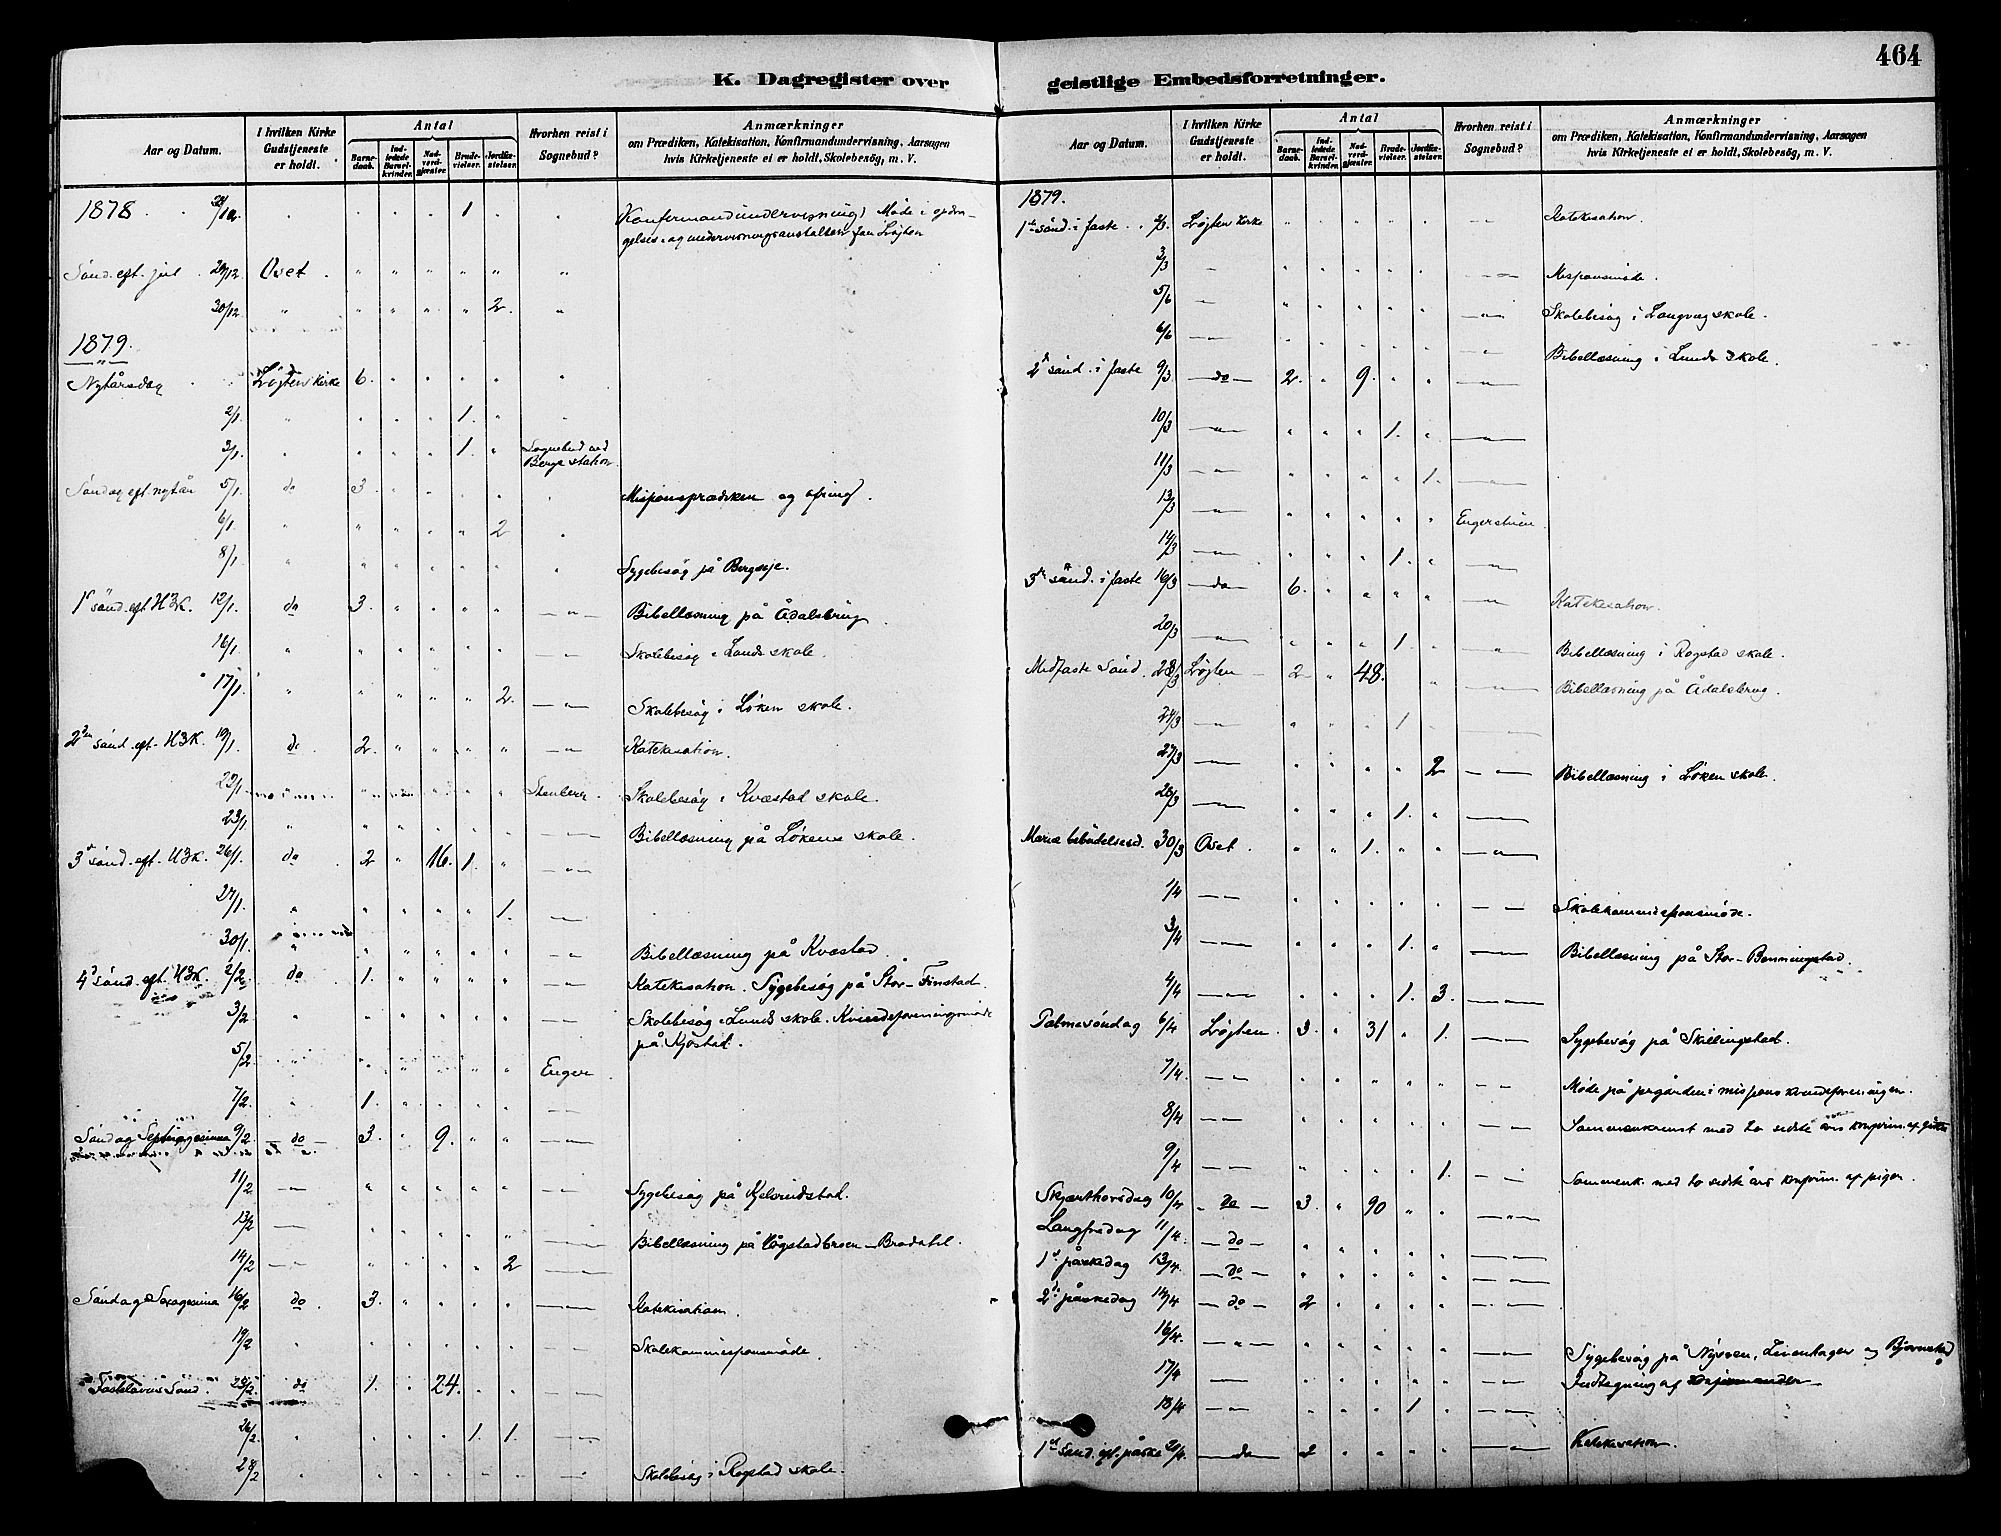 464
K. Dagregister over
geistlige Embedsforretninger.
Aar og Datum.
I hvilken Kirke Gudstjeneste er holdt.
Antal
Barne-daab.
Ind-ledede Barsel-kvinder.
Nad-verd-gjæster.
Brude-vielser.
Jordfæ-stelser.
Hvorhen reist i Sognebud?
Anmærkninger
om Prædiken, Katekisation, Konfirmandundervisning, Aarsagen
hvis Kirketjeneste ei er holdt, Skolebesög, m. V.
1878 28/12 1 Konfermandundervisning) Møde i opdra-
gelses- og undervisningsanstalten for Løjten
Sönd. eft. jul 29/12 Ovet
30/12 2
1879
Nytårsdag Løjten Kirke 6
2/1 1
3/1 1 Sognebud ved
Berge station
Söndag eft. nytår 5/1 do 3 Misjonsprædiken og ofring
6/1 2
8/1 Sygebesög på Bergseje.
1ste sönd. eft H3K. 12/1 do 3 Bibellæsning på Ådalsbrug
16/1 Skolebesög i Lunds skole.
17/1 2 Skolebesög i Løken skole.
2den sönd. eft. H3K. 19/1 do 2 Katekisation
22/1 Stenberg Skolebesög i Kvæstad skole
23/1 Bibellæsning på Løkens skole.
3die sönd. eft. H3K. 26/1 do 2 16 1
27/1 1
30/1 Bibellæsning på Kvæstad
4de sönd. eft. H3K. 2/2 do 1 Katekisation. Sygebesög på Stor-Finstad
3/2 Skolebesög i Lunds skole. Kvindeforeningsmöde
på Kjöstad.
5/2 Enger
7/2 1
Söndag Septuagesima 9/2 do 3 9
11/2 Sygebesög på Kjelsrudstad.
13/2 Bibellæsning på
14/2 2
Söndag Sexagesima 16/2 do 3 Katekisation
19/2 Skolekommissionsmöde
Fastelavns Sönd. 23/2 do 1 24
26/2 1 1
28/2 Skolebesög i Rogstad skole.
Aar og Datum.
I hvilken Kirke Gudstjeneste er holdt.
Antal
Barne-daab.
Ind-ledede Barsel-kvinder.
Nad-verd-gjæster.
Brude-vielser.
Jordfæ-stelser.
Hvorhen reist i Sognebud?
Anmærkninger
om Prædiken, Katekisation, Konfirmandundervisning, Aarsagen
hvis Kirketjeneste ei er holdt, Skolebesög, m. V.
1879.
1ste sönd. i faste 2/3 Løjten Kirke Katekisation
3/3 Misjonsmöde.
5/6 Skolebesög i Langvug skole.
6/6 Bibellæsning i Lunds skole.
2d sönd. i faste 9/3 do 2 9
10/3 1
11/3 1
13/3 Engerstuen
14/3 1
3die sönd. i faste 16/3 do 6 Katekisation
20/3 1 Bibellæsning i Rogstad skole.
Midfaste Sönd. 23/3 Løjten 2 48 Bibellæsning på Ådalsbrug.
24/3 1
27/3 2 Bibellæsning i Løken skole
28/3 1
Mariæ bebudelsesd. 30/3 Ovet 1
1/4 Skolekommissionsmöde.
3/4 1 Bibellæsning på Stor-Benningstad
4/4 1 3
Palmesöndag 6/4 Løjten 3 31 1 Sygebesög på Skillingstad.
7/4 Møde på prgården i misjons kvindeforeningen.
8/4 Sammenkomst med to sidste års konfirm. af gutter
9/4 1 Sammenk. med to sidste års konfirm. af piger
Skjærthorsdag 10/4 do 3 90
Langfredag 11/4 do
1ste påskedag 13/4 do
2den påskedag 14/4 do 2
16/4 Sygebesög på Nysæn, Livenhagen og Bjørnstad
17/4 Indtegning af konfirmander
18/4 1
1ste sönd. eft. påske 20/4 do 2 Katekisation